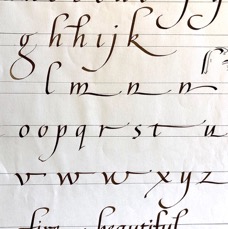 g h h i j k
l m n n
o o p q r s t u
v w w x y z
five beautiful